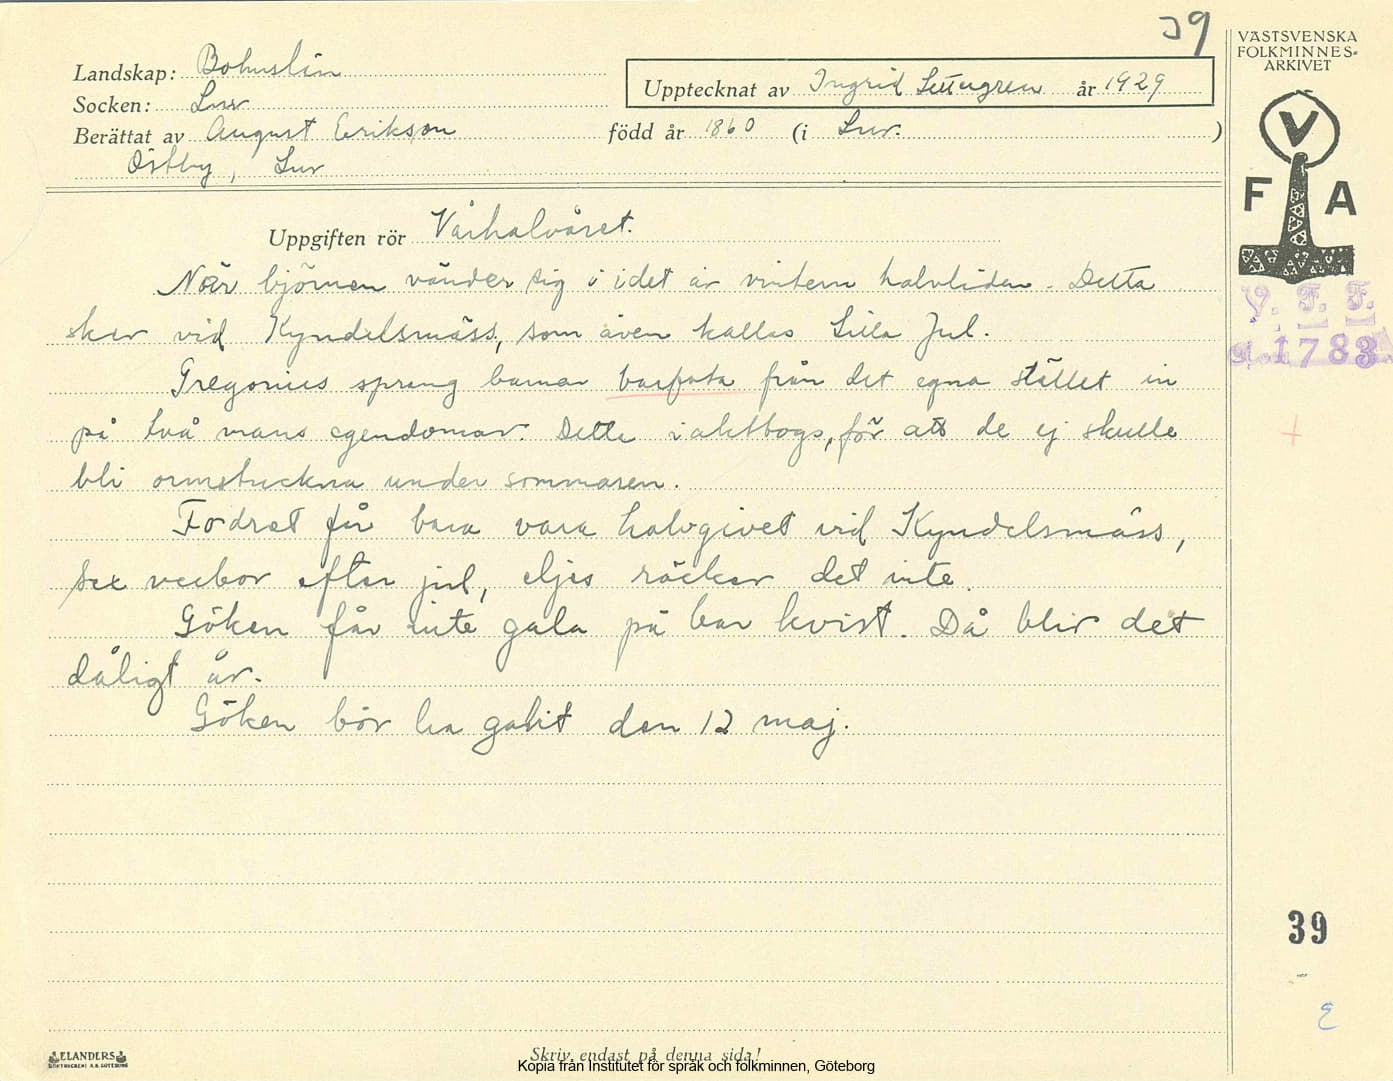 39
VÄSTSVENSKA
FOLKMINNES-
ARKIVET
Landskap: Bohuslän
Upptecknat av Ingrid år 1929
Socken: Lur
Berättat av August Erikson född år 1860 (i Lur. )
Östby, Lur
V
F A
Uppgiften rör Vårhalvåret.
När björnen vänder sig i idet är vintern halvliden. Detta
sker vid Kyndelsmäss, som även kallas Lilla Jul.
Gregorius sprang barnen barfota från det egna stället in
på två mans egendomar. Detta iakttogs, för att de ej skulle
bli ormstuckna under sommaren.
Fodret får bara vara halvgivet vid Kyndelsmäss,
sex veckor efter jul, eljes räcker det inte.
Göken får inte gala på bar kvist. Då blir det
dåligt år.
Göken bör ha galit den 12 maj.
V. F. F.
1783
39
E
ELANDERS
BOKTRYCKERI A.B. GÖTEBORG
Skriv endast på denna sida!
Kopia från Institutet för språk och folkminnen, Göteborg